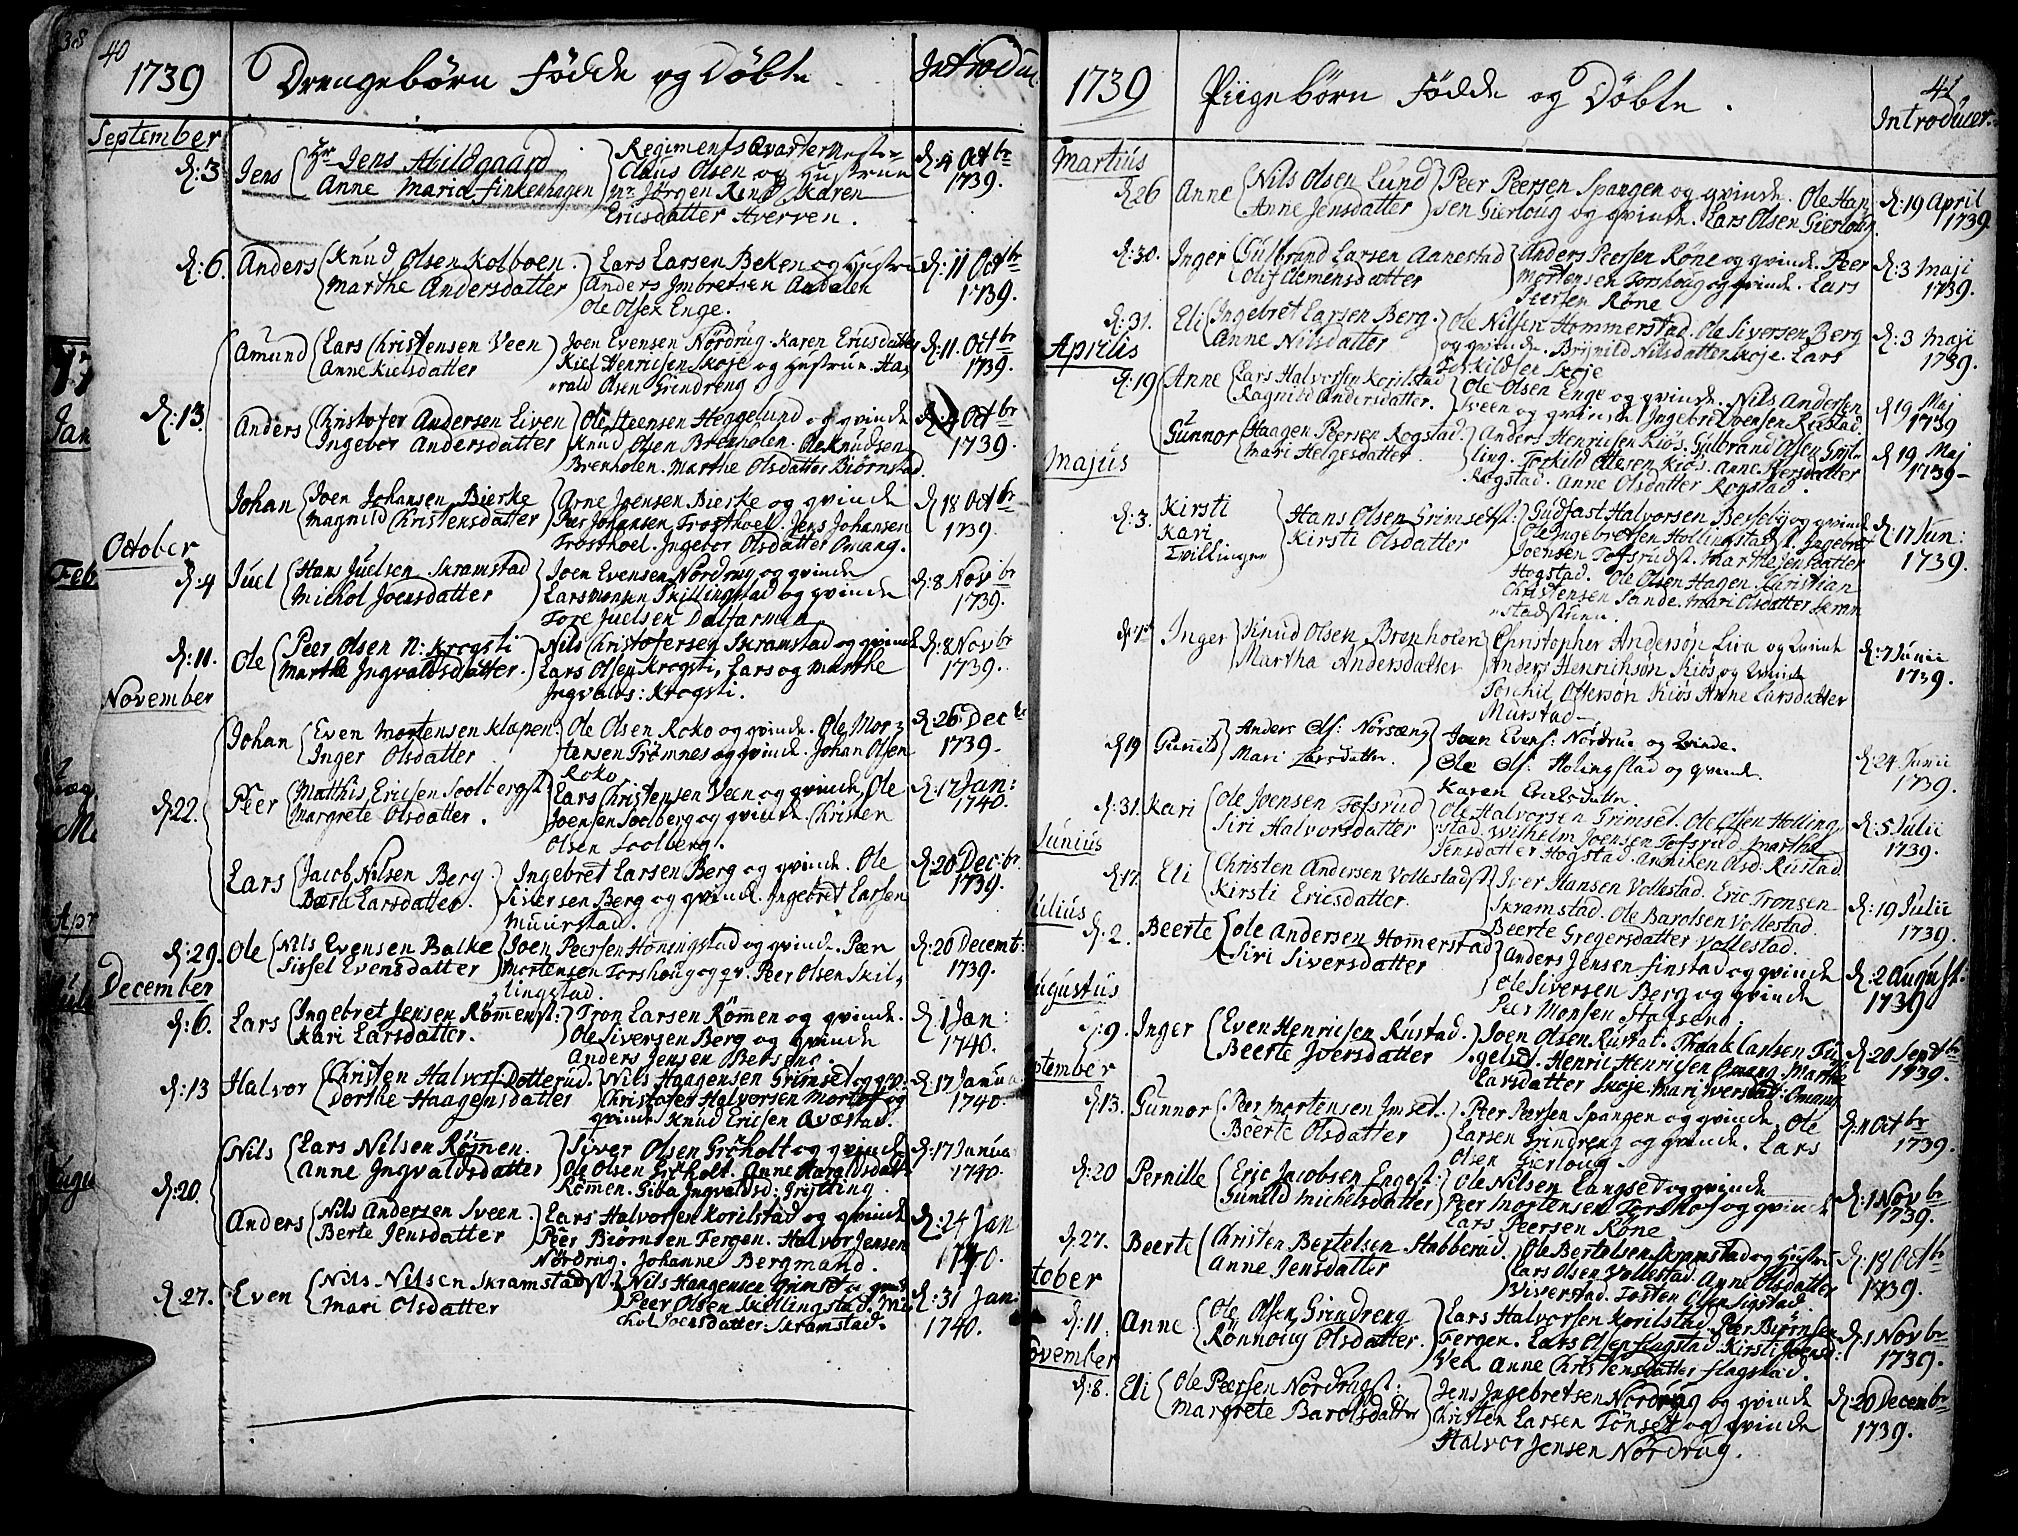 38
40
1739 Drengebørn Fødde og Døbte. Introduc.
September
d: 3. Jens Hr Jens Abildgaard
Anne Maria Finkenhagen
Regiments Qvartermester
Claus Olsen og Hustrue
Mr Jørgen Rind Karen
Ericsdatter Averren.
d: 4 Octbr 1739.
d: 6. Anders Knud Olsen Kolboen.
Marthe Andersdatter
Lars Larsen Beken og Hustru
Anders Imbretsen Andalen
Ole Olsen Enge.
d: 11 Octbr 1739.
d: 13. Amund Lars Christensen Veen
Anne Kielsdatter
Joen Evensen Nordrug. Karen Ericsdatter
Kiel Henricsen Skoje og Hustrue. Har
rald Olsen Grindreng
d: 11. Octbr 1739.
Anders Christofer Andersen Liven
Ingebor Andersdatter
Ole Steensen Heggelund og gvinde
Knud Olsen Brenholen. Ole Knudsen
Brenholen. Marthe Olsdatter Biørnstad.
d: 4 Octbr 1739.
Johan Joen Johansen Bierke
Magnild Christensdatter
Arne Joensen Bierke og gvinde
Peer Johansen Trosthoel. Jens Johansen
Trosthoel. Ingebor Olsdatter Omang.
d: 18 Octbr 1739.
October
d: 4 Juel Hans Juelsen Skramstad
Michol Joensdatter
Joen Evensen Nordrug og gvinde
Lars Monsen Skillingstad og gvinde
Tore Juelsen Dalfarmen
d: 8 Novbr 1739.
d: 11. Ole Peer Olsen N: Krogsti
Marthe Ingvaldsdatter.
Nils Christofersen Skramstad og gvinde
Lars Olsen Krogsti, Lars og Marthe
Ingvalds: Krogsti.
d: 8 Novbr 1739.
November
d: 22. Johan Even Mortensen Klæpen
Inger Olsdatter
Ole Olsen Roko og gvinde. Ole Mor:
tensen Trømnes og gvinde. Johan Olsen
Roko
d: 26 Decbr 1739.
Peer Matthis Ericsen Soolbergst:
Margrete Olsdatter.
Lars Christensen Veen og gvinde, Ole
Joensen Soolberg og gvinde. Christen
Olsen Soolberg.
d: 17 Jan: 1740.
Lars Jacob Nilsen Berg
Bærte Larsdatter.
Ingebret Larsen Berg og gvinde. Ole
Siversen Berg og gvinde. Ingebret Larsen
Muurstad.
d: 20 Dec:br 1739.
d: 29. Ole Nils Evensen Balke
Sissel Evensdatter
Joen Peersen Honingstad og gvinde. Peer
Mortensen Torshoug og gv. Peer Olsen Skil-
lingstad.
d: 20 Decemb: 1739.
December
d: 6. Lars Ingebret Jensen Rømenst:
Kari Larsdatter.
Tron Larsen Rømen og gvinde.
Ole Siversen Berg og gvinde
Anders Jensen Betseng.
d: 1 Jan: 1740.
d: 13 Halvor Christen Halvors: Dotterud.
Dorthe Haagensdatter
Nils Haagensen Grimset og gv:
Christofer Halvorsen Mortof og
gvinde Knud Ericsen Qværstad.
d: 17 Janua 1740.
d: 20. Nils Lars Nilsen Rømen.
Anne Ingvaldsdatter
Siver Olsen Grøholt og gvinde
Ole Olsen Grøholt. Anne Haraldsdatter
Rømen. Giba Ingvaldsd:
d: 17 Janua 1740.
Anders Nils Andersen Sveen.
Berte Jensdatter
Lars Halvorsen Korilstad og gvinde
Peer Biørnsen Fergen. Halvor Jensen
Nordrug. Johanne Bergmand.
d: 24 Jan 1740.
d: 27. Even Nils Nilsen Skramstadst:
Mari Olsdatter
Nils Haagensen Grimset og gvinde
Peer Olsen Skillingstad. Mi-
chol Joensdatter Skramstad.
d: 31 Jan: 1740.
41
1739 Piigebørn Fødde og Døbte. Introducer.
Martius
d: 26 Anne Nils Olsen Lund
Anne Jensdatter
Peer Peersen Spangen og gvinde. Ole Han
sen Gierloug og gvinde. Lars Olsen Gierloug.
d: 19 April 1739.
d: 30. Inger Gulbrand Larsen Aanestad
Oluf Clemensdatter
Anders Peersen Røne og gvinde. Peer
Mortensen Torshoug og gvinde. Lars
Peersen Røne
d: 3 Maji 1739.
d: 31. Eli Ingebret Larsen Berg.
Anne Nilsdatter
Ole Nilsen Hommerstad. Ole Siversen Berg
og gvinde. Brynild Nilsdatter Skoje. Lars
Torkildsen Skoje
d: 3 Maji 1739.
Aprilis
d: 19 Anne Lars Halvorsen Korilstad
Ragnild Andersdatter.
Ole Olsen Enge og gvinde. Nils Andersen
Sveen og gvinde. Ingebret Svensen Kielstad.
d 19 Maj 1739
Gunnor Haagen Peersen Rogstad.
Mari Helgesdatter.
Anders Henricsen Kiøs. Gulbrand Olsen Gryt
ling. Torkild Ottesen Kiøs. Anne Peersdatter
Rogstad. Anne Olsdatter Rogstad.
d 19 Maj 1739-
Majus
d: 3. Kirsti
Kari
Tvillinger
Hans Olsen Grimsetst:
Kirsti Olsdatter
Gudfast Halvorsen Berseby og gvinde
Ole Ingebretsen Hollingstadst. Ingebret
Joensen Tofsrudst. Marthe Jensdatter
Hogstad. Ole Olsen Hagen Christian
Christensen Sande. Mari Olsdatter Skram
stadstuen.
d: 17 Jun: 1739.
d: 7 Inger Knud Olsen Brenholen
Martha Andersdatter
Christopher Andersøn Liva og Qvinde
Anders Henrichsøn Kiøs og Qvinde
Torchil Ottersøn Kiøs Anne Larsdatter
Murstad-
d: 7 Junii 1739.
d 19 Gunnild Anders Ols: Nørsæng
Mari Larsdatter.
Joen Evens: Nordrue og Qvinde.
Ole Ols: Holingstad og gvinde.
Karen Ericksdatter.
d: 24 Junii 1739.
d: 31. Kari Ole Joensen Tofsrud
Siri Halvorsdatter
Ole Halvorsen Grimset. Ole Olsen Holling
stad. Wilhelm Joensen Tofsrud Marthe
Jensdatter Hogstad. Anniken Olsd: Rustad.
d: 5 Julii 1739.
Junius
d: 17. Eli Christen Andersen Vollestadst
Kirsti Ericsdatter.
Iver Hansen Vollestad. Eric Tronsen
Skramstad. Ole Barolsen Vollestad.
Beerte Gregersdatter Vollestad.
d: 19 Julii 1739.
Julius
d: 2. Beerte Ole Andersen Homerstad
Siri Siversdatter
Anders Jensen Finstad og gvinde
Ole Siversen Berg og gvinde
Peer Monsen Stafseng.
d: 2 August: 1739
Augustus
d: 9. Inger Even Henricsen Rustad.
Beerte Iversdatter
Joen Olsen Rustad. Traak Larsen Fu
gelsd. Henric Henricsen Omang. Marthe
Larsdatter Skoje Mari Iversdat: Omang
d: 20 Septbr 1739.
September
d: 13. Gunnor Peer Mortensen Imset.
Beerte Olsdatter
Peer Peersen Spangen og gvinde, Ole
Larsen Grindreng og gvinde. Lars
Olsen Gierloug.
d: 11 Octbr 1739.
d: 20 Pernille Eric Jacobsen Engest:
Gunild Michelsdatter
Ole Nilsen Langset og gvinde
Peer Mortensen Torshof og gvinde
Lars Peersen Røne
d: 1 Novbr 1739.
d: 27. Beerte Christen Bertelsen Stabberud.
Anne Jensdatter
Ole Bertelsen Skramstad og Hustru
Lars Olsen Vollestad. Anne Olsdatter
Biverstad. Tosten Olsen Sigstad.
d: 18 Octbr 1739.
October
d: 11 Anne Ole Olsen Grindreng
Rønnoug Olsdatter
Lars Halvorsen Korilstad. Peer Biørnsen
Fergen. Lars Olsen Flagstad. Kirsti Joensd:
Veen Anne Christensdatter Flagstad.
d: 1 Novbr 1739.
November
d: 8. Eli Ole Peersen Nordrugst:
Margrete Barolsdatter
Jens Ingebretsen Nordrug og gvinde
Christen Larsen Tønset og gvinde
Halvor Jensen Nordrug.
d: 20 Decembr 1739.